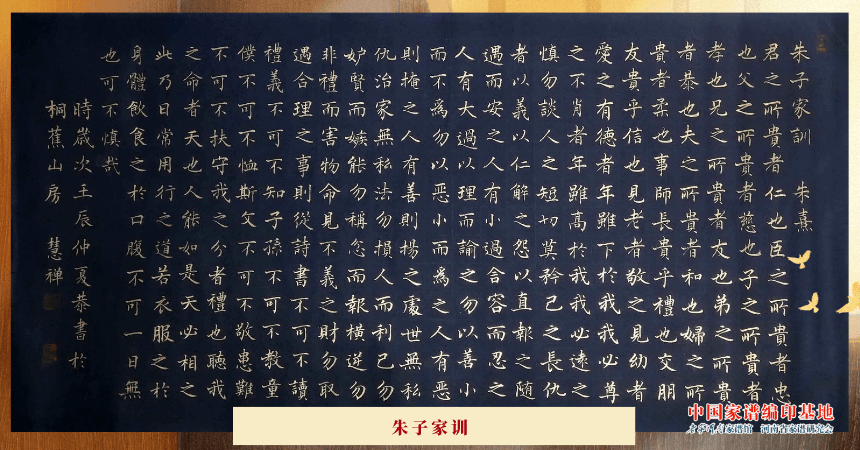 朱子家訓 朱熹
君之所貴者仁也臣之所貴者忠
也父之所貴者慈也子之所貴者
孝也兄之所貴者友也弟之所貴
者恭也夫之所貴者和也婦之所
貴者柔也事師長貴乎禮也交朋
友貴乎信也見老者敬之見幼者
愛之有德者年雖下於我我必尊
之不肖者年雖高於我我必遠之
慎勿談人之短切莫矜己之長仇
者以義以仁解之怨以直報之隨
遇而安之人有小過含容而忍之
人有大過以理而諭之勿以善小
而不為勿以惡小而為之人有惡
則掩之人有善則揚之處世無私
仇治家無私法勿損人而利己勿
妒賢而嫉能勿稱忿而報橫逆勿
非禮而害物命見不義之財勿取
遇合理之事則從詩書不可不讀
禮義不可不知子孫不可不教童
僕不可不恤斯文不可不敬患難
不可不扶守我之分者禮也聽我
之命者天也人能如是天必相之
此乃日常用行之道若衣服之於
身體飲食之於口腹不可一日無
也可不慎哉
時歲次壬辰仲夏恭書於
桐蕉山房 慧禪
朱子家训
中国家谱编印基地
家谱馆 河南省家谱研究会